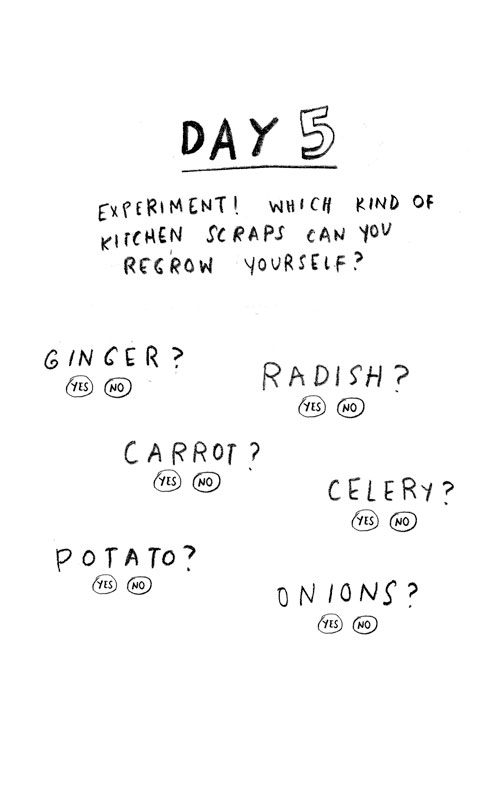 DAY 5
EXPERIMENT! WHICH KIND OF
KITCHEN SCRAPS CAN YOU
REGROW YOURSELF?
GINGER?
YES NO
RADISH?
YES NO
CARROT?
YES NO
CELERY?
YES NO
POTATO?
YES NO
ONIONS?
YES NO